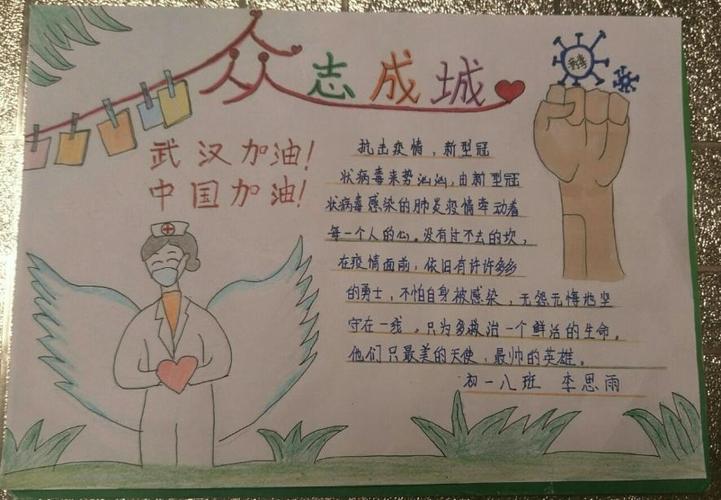 众志成城
病毒
武汉加油!
中国加油!
抗击疫情，新型冠
状病毒来势汹汹,由新型冠
状病毒感染的肺炎疫情牵动着
每一个人的心。没有过不去的坎，
在疫情面前，依旧有许许多多
的勇士，不怕自身被感染，无怨无悔地坚
守在一线，只为多救治一个鲜活的生命。
他们只最美的天使，最帅的英雄。
初一八班 李思雨